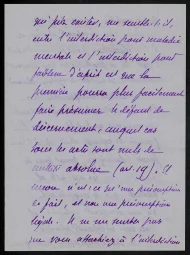 qui puisse exister, me semble-t-il,
entre l'interdiction pour maladie
mentale et l'interdiction pour
faiblesse d'esprit est que la
première pourra plus facilement
faire présumer le défaut de
discernement, auquel cas
tous les actes sont nuls de
nullité absolue (art. 19).
encore n'est-ce là qu'une présomption
de fait, et non une présomption
légale. Il ne me semble pas
que vous attachiez à l'interdiction